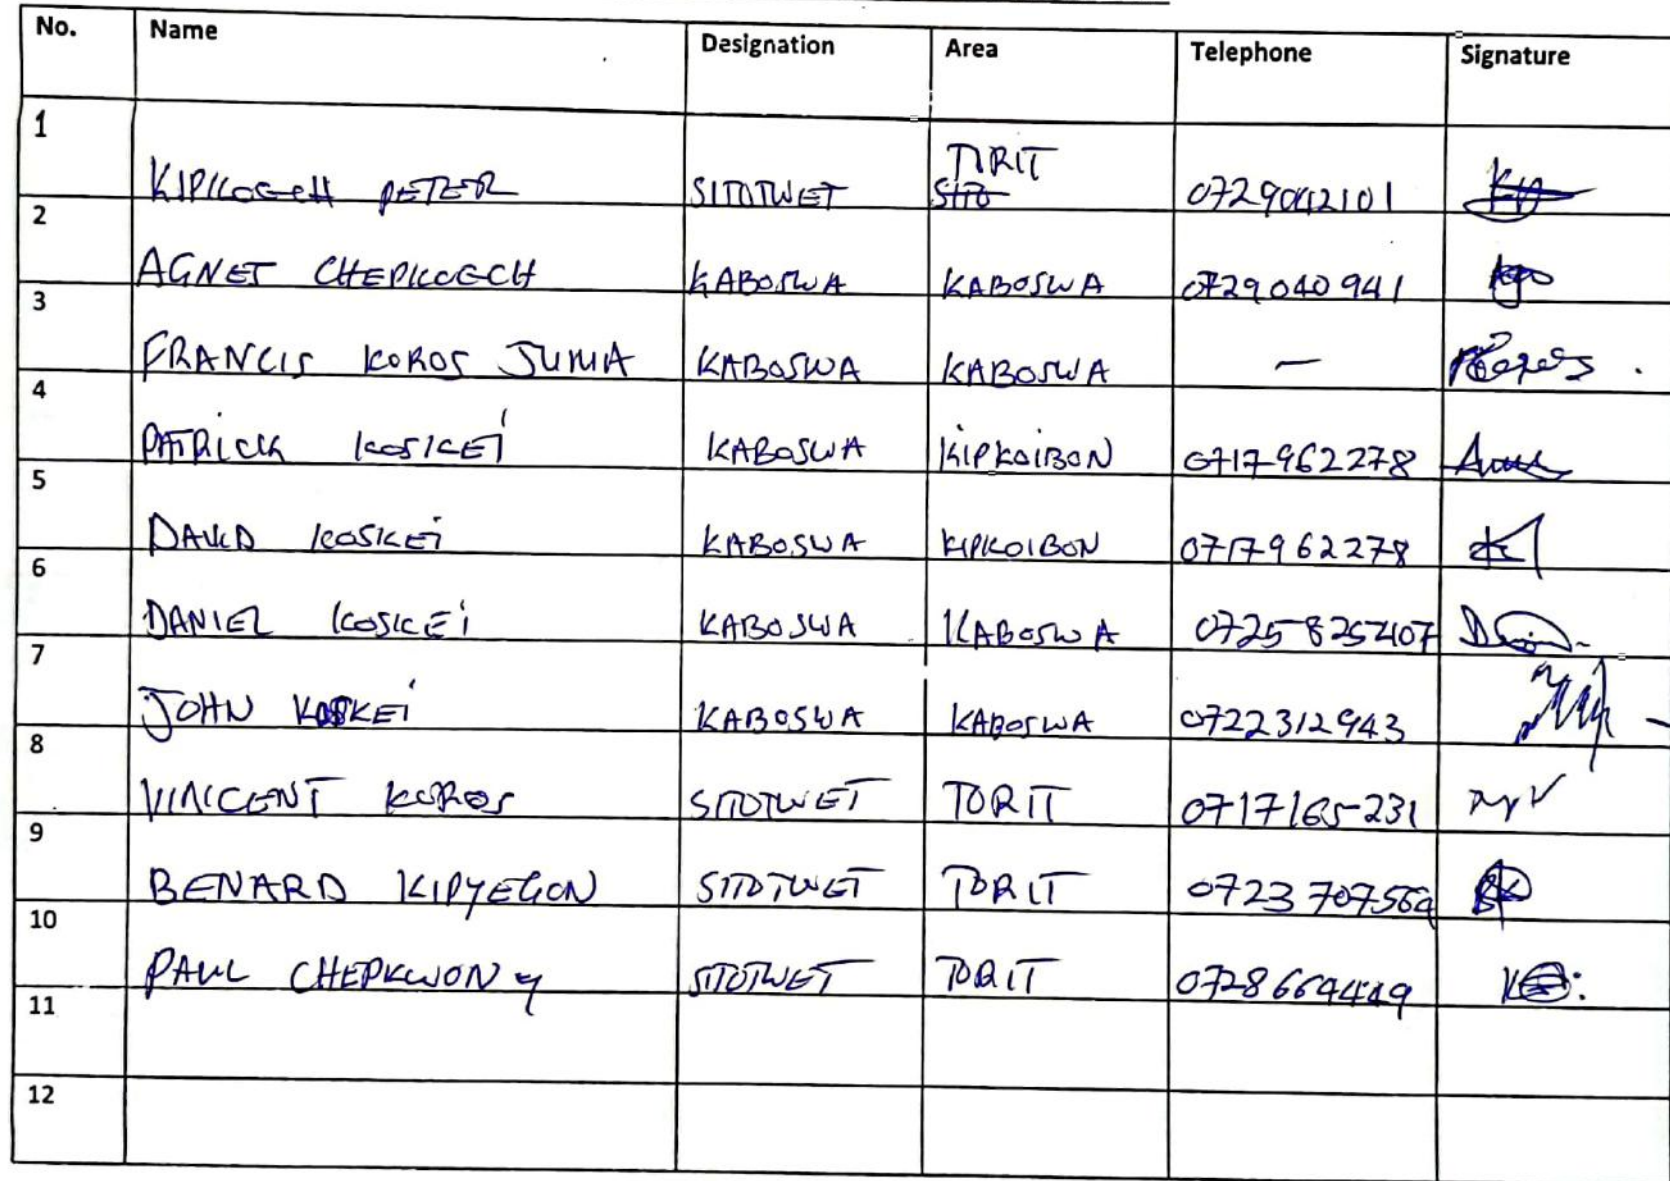 No. Name Designation Area Telephone Signature
1 KIPKOECH PETER SITOTWET TIRIT 0729042101
2 AGNET CHEPKOECH KABOSWA KABOSWA 0729040941
3 FRANCIS KOROS JUMA KABOSWA KABOSWA — Koros
4 PATRICK KOSKEI KABOSWA KIPKOIBON 0717962278
5 DAVID KOSKEI KABOSWA KIPKOIBON 0717962278
6 DANIEL KOSKEI KABOSWA KABOSWA 0725825407
7 JOHN KOSKEI KABOSWA KABOSWA 0722312943
8 VINCENT KOROS SITOTWET TORIT 0717165231
9 BENARD KIPYEGON SITOTWET TORIT 0723707569
10 PAUL CHEPKWONY SITOTWET TORIT 0728669449
11
12